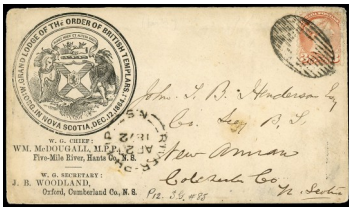 M.W.GRAND LODGE OF THE ORDER OF BRITISH TEMPLARS.
INSTD IN NOVA SCOTIA, DEC. 12, 1867
W. G. CHIEF:
WM. McDOUGALL, M.P.P.
Five-Mile River, Hants Co., N. S.
W. G. SECRETARY:
J. B. WOODLAND,
Oxford, Cumberland Co., N. S.
John T. B. Henderson Esq
Co. B. T.
New Annan
Colchester Co
N. Scotia
AP 2
1872
N.S.